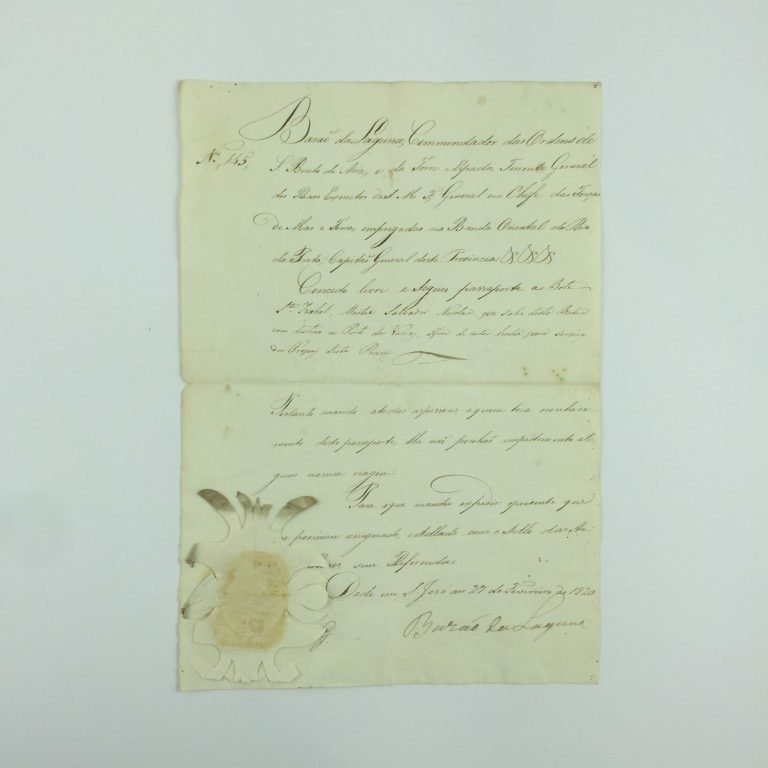 Barão da Laguna, Commendador das Ordens de
Nº 145,
S. Bento de Aviz, e da Torre e Espada, Tenente General
dos Reaes Exercitos de S. M. F. General em Cheffe das Forças
de Mar e Terra, empregadas na Banda Oriental do Rio
da Prata, Capitão General desta Provincia
Concedo livre e seguro passaporte a
Sta Izabel, Mestre Salvador Nicolao que sahe deste
com destino ao Porto das Vacas, afim de lenha para serviço
das Tropas desta Praça
Portanto mando atodas aspessoas aquem toca oconheci-
mento deste passaporte, lhe não ponhão impedimento al-
gum nasua viagem.
Para oque mandei expedir opresente que
por mim assignado, esellado com o Sello das Ar-
sem Referenda.
Dado em S. José aos 27 de Fevereiro de 1820
Barão da Laguna